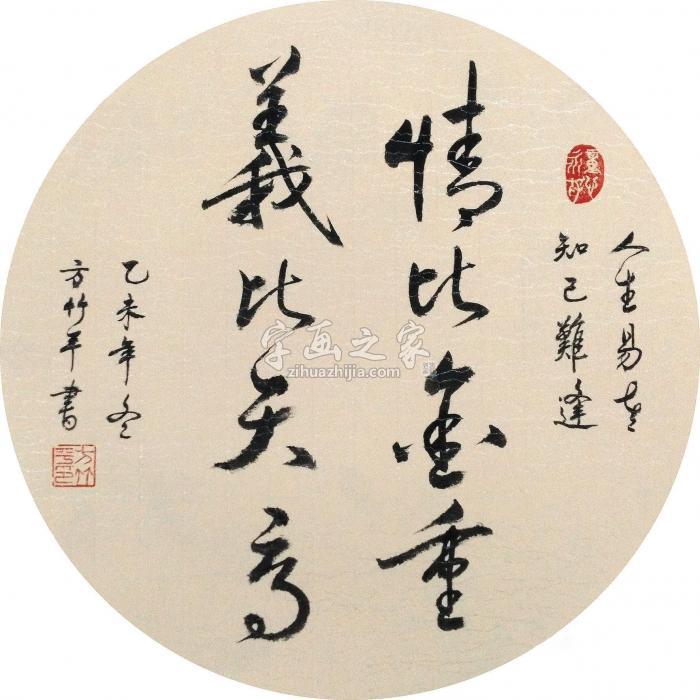 人生易老
知己難逢
情比金重
義比天高
乙未年冬
方竹平書
方竹平印
字画之家
zihuazhijia.com